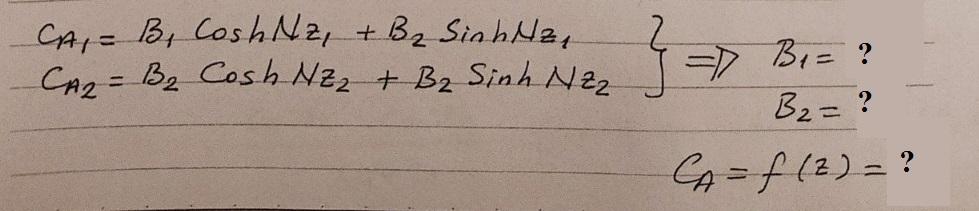 C_A1 = B₁ Cosh Nz₁ + B₂ Sinh Nz₁
C_A2 = B₂ Cosh Nz₂ + B₂ Sinh Nz₂ } => B₁ = ?
B₂ = ?
C_A = f(z) = ?